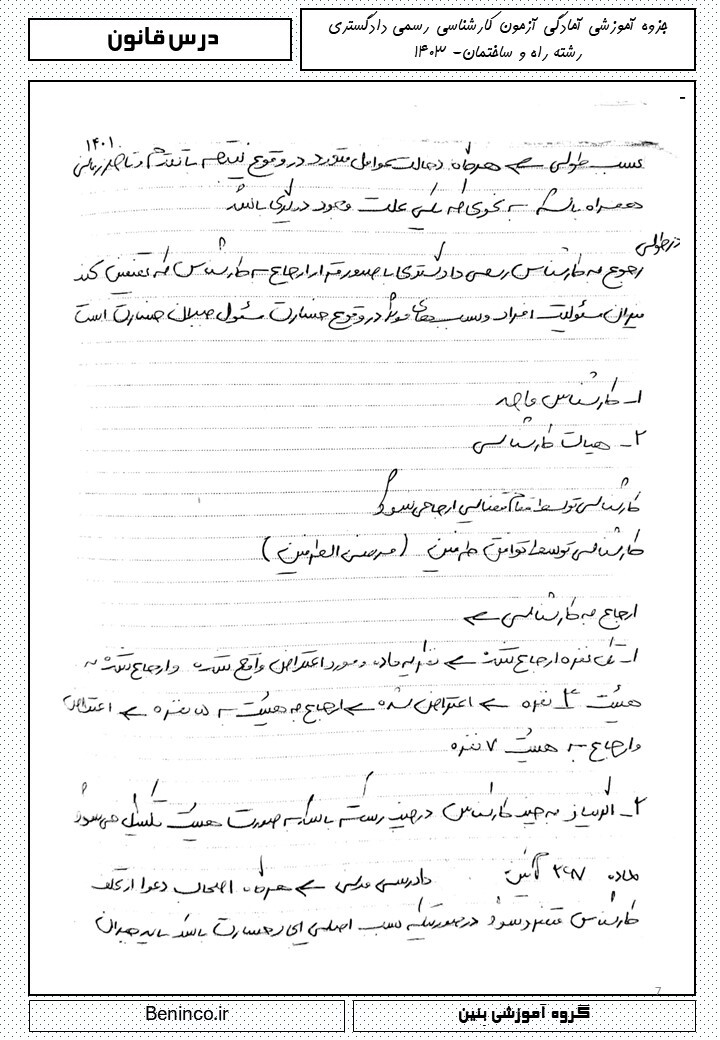 جزوه آموزشی آمادگی آزمون کارشناسی رسمی دادگستری
رشته راه و ساختمان- ۱۴۰۳
درس قانون
۱۴۰۱
سبب طولی ← هرگاه دخالت عوامل متعدد در وقوع نتیجه با تقدم و تاخر زمانی
همراه باشد به نحوی که یکی علت وجود دیگری باشد
در طولی
رجوع به کارشناس رسمی دادگستری با صدور قرار ارجاع به کارشناس که تعیین کند
میزان مسئولیت افراد و سبب های موثر در وقوع خسارت مسئول جبران خسارت است
۱- کارشناس واحد
۲- هیات کارشناسی
کارشناسی توسط مقام قضایی ارجاع میشود
کارشناسی توسط توافق طرفین (مرضی الطرفین)
ارجاع به کارشناسی ←
۱- تک نفره ارجاع شد ← نظریه داده و مورد اعتراض واقع شده و ارجاع شد به
هیئت ۳ نفره ← اعتراض شده ← ارجاع به هیئت ۵ نفره ← اعتراض
و ارجاع به هیئت ۷ نفره
۲- اگر نیاز به چند کارشناس در چند رسته باشد به صورت هیئت تشکیل می شود
ماده دادرسی مدنی ← هرگاه اصحاب دعوا از تخلف
کارشناس متضرر شود در صورتیکه سبب اصلی ایجاد خسارت باشد باید جبران
7
گروه آموزشی بنین
Beninco.ir